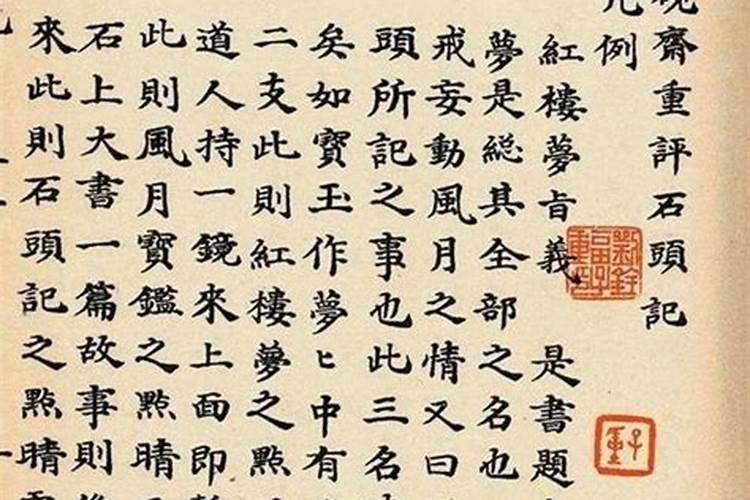 硯齋重評石頭記
凡例
紅樓夢旨義 是書題
夢是総其全部之名也
戒妄動風月之情又曰
頭所記之事也此三名
矣如寶玉作夢ヒ中有
二支此則紅樓夢之點
道人持一鏡來上面即
此則風月寶鑑之點晴
石上大書一篇故事則
來此則石頭記之點晴
劉銓
畐子
重印
子重